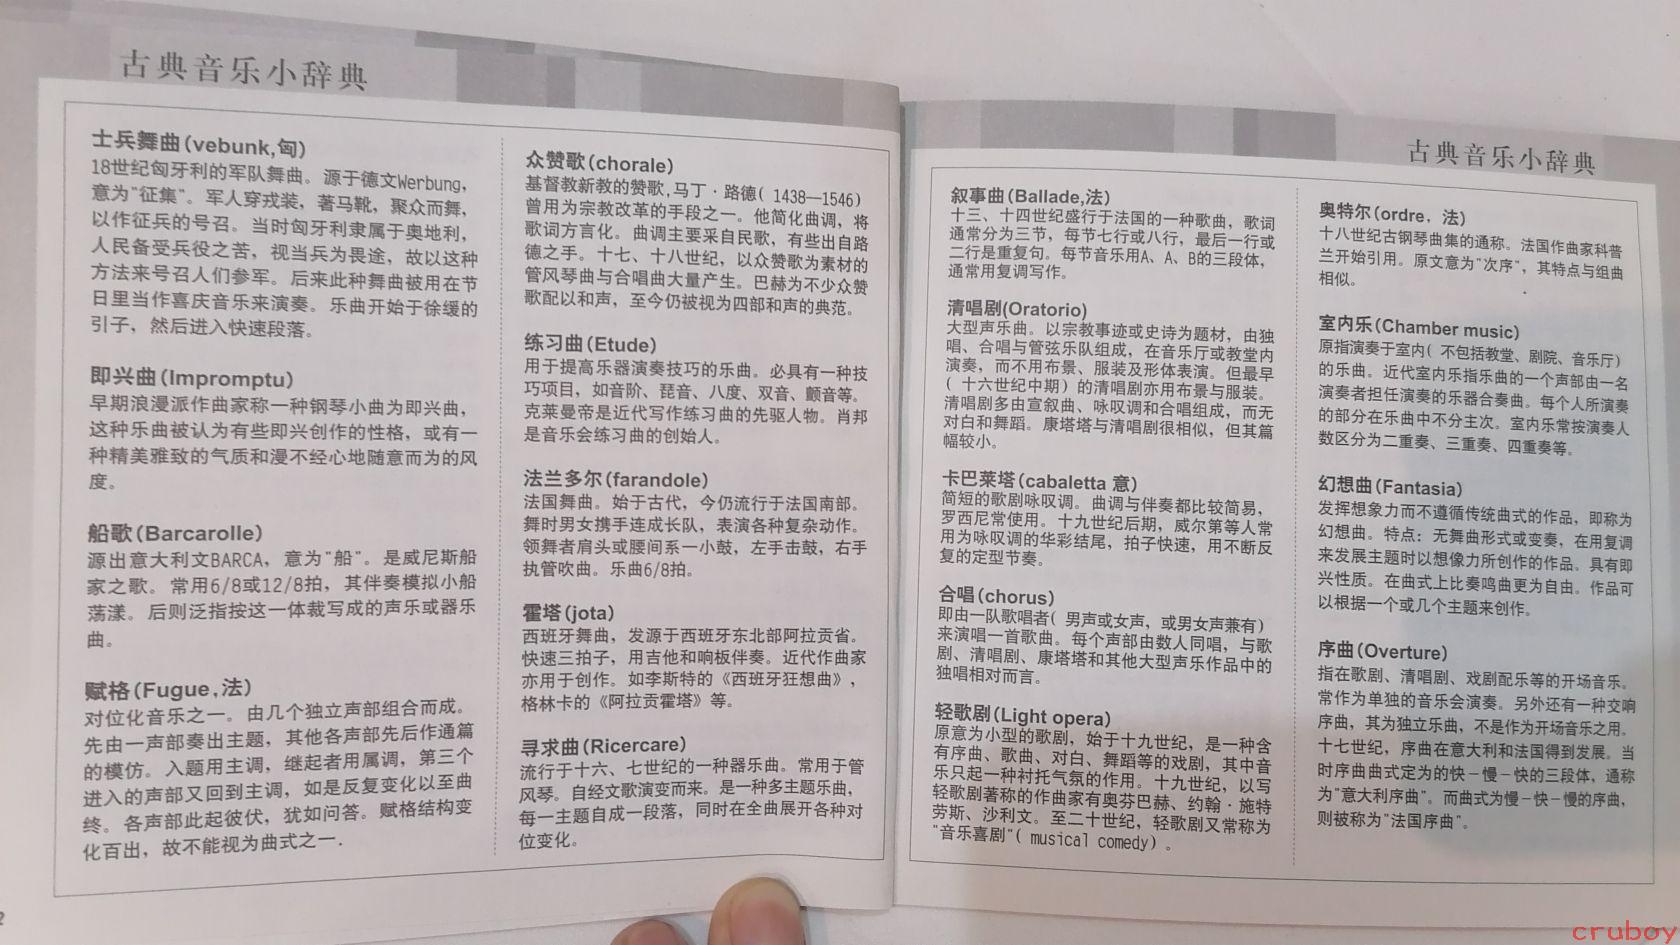 古典音乐小辞典
士兵舞曲(vebunk,匈)
18世纪匈牙利的军队舞曲。源于德文Werbung,
意为"征集"。军人穿戎装，著马靴，聚众而舞，
以作征兵的号召。当时匈牙利隶属于奥地利，
人民备受兵役之苦，视当兵为畏途，故以这种
方法来号召人们参军。后来此种舞曲被用在节
日里当作喜庆音乐来演奏。乐曲开始于徐缓的
引子，然后进入快速段落。
即兴曲(Impromptu)
早期浪漫派作曲家称一种钢琴小曲为即兴曲，
这种乐曲被认为有些即兴创作的性格，或有一
种精美雅致的气质和漫不经心地随意而为的风
度。
船歌(Barcarolle)
源出意大利文BARCA，意为"船"。是威尼斯船
家之歌。常用6/8或12/8拍，其伴奏模拟小船
荡漾。后则泛指按这一体裁写成的声乐或器乐
曲。
赋格(Fugue,法)
对位化音乐之一。由几个独立声部组合而成。
先由一声部奏出主题，其他各声部先后作通篇
的模仿。入题用主调，继起者用属调，第三个
进入的声部又回到主调，如是反复变化以至曲
终。各声部此起彼伏，犹如问答。赋格结构变
化百出，故不能视为曲式之一.
众赞歌(chorale)
基督教新教的赞歌,马丁·路德( 1438—1546)
曾用为宗教改革的手段之一。他简化曲调，将
歌词方言化。曲调主要采自民歌，有些出自路
德之手。十七、十八世纪，以众赞歌为素材的
管风琴曲与合唱曲大量产生。巴赫为不少众赞
歌配以和声，至今仍被视为四部和声的典范。
练习曲(Etude)
用于提高乐器演奏技巧的乐曲。必具有一种技
巧项目，如音阶、琵音、八度、双音、颤音等。
克莱曼帝是近代写作练习曲的先驱人物。肖邦
是音乐会练习曲的创始人。
法兰多尔(farandole)
法国舞曲。始于古代，今仍流行于法国南部。
舞时男女携手连成长队，表演各种复杂动作。
领舞者肩头或腰间系一小鼓，左手击鼓，右手
执管吹曲。乐曲6/8拍。
霍塔(jota)
西班牙舞曲，发源于西班牙东北部阿拉贡省。
快速三拍子，用吉他和响板伴奏。近代作曲家
亦用于创作。如李斯特的《西班牙狂想曲》，
格林卡的《阿拉贡霍塔》等。
寻求曲(Ricercare)
流行于十六、七世纪的一种器乐曲。常用于管
风琴。自经文歌演变而来。是一种多主题乐曲，
每一主题自成一段落，同时在全曲展开各种对
位变化。
2
古典音乐小辞典
叙事曲(Ballade,法)
十三、十四世纪盛行于法国的一种歌曲，歌词
通常分为三节，每节七行或八行，最后一行或
二行是重复句。每节音乐用A、A、B的三段体，
通常用复调写作。
清唱剧(Oratorio)
大型声乐曲。以宗教事迹或史诗为题材，由独
唱、合唱与管弦乐队组成，在音乐厅或教堂内
演奏，而不用布景、服装及形体表演。但最早
( 十六世纪中期) 的清唱剧亦用布景与服装。
清唱剧多由宣叙曲、咏叹调和合唱组成，而无
对白和舞蹈。康塔塔与清唱剧很相似，但其篇
幅较小。
卡巴莱塔(cabaletta 意)
简短的歌剧咏叹调。曲调与伴奏都比较简易，
罗西尼常使用。十九世纪后期，威尔第等人常
用为咏叹调的华彩结尾，拍子快速，用不断反
复的定型节奏。
合唱(chorus)
即由一队歌唱者( 男声或女声，或男女声兼有)
来演唱一首歌曲。每个声部由数人同唱，与歌
剧、清唱剧、康塔塔和其他大型声乐作品中的
独唱相对而言。
轻歌剧(Light opera)
原意为小型的歌剧，始于十九世纪，是一种含
有序曲、歌曲、对白、舞蹈等的戏剧，其中音
乐只起一种衬托气氛的作用。十九世纪，以写
轻歌剧著称的作曲家有奥芬巴赫、约翰·施特
劳斯、沙利文。至二十世纪，轻歌剧又常称为
"音乐喜剧"( musical comedy) 。
奥特尔(ordre，法)
十八世纪古钢琴曲集的通称。法国作曲家科普
兰开始引用。原文意为"次序"，其特点与组曲
相似。
室内乐(Chamber music)
原指演奏于室内( 不包括教堂、剧院、音乐厅)
的乐曲。近代室内乐指乐曲的一个声部由一名
演奏者担任演奏的乐器合奏曲。每个人所演奏
的部分在乐曲中不分主次。室内乐常按演奏人
数区分为二重奏、三重奏、四重奏等。
幻想曲(Fantasia)
发挥想象力而不遵循传统曲式的作品，即称为
幻想曲。特点：无舞曲形式或变奏，在用复调
来发展主题时以想像力所创作的作品。具有即
兴性质。在曲式上比奏鸣曲更为自由。作品可
以根据一个或几个主题来创作。
序曲(Overture)
指在歌剧、清唱剧、戏剧配乐等的开场音乐。
常作为单独的音乐会演奏。另外还有一种交响
序曲，其为独立乐曲，不是作为开场音乐之用。
十七世纪，序曲在意大利和法国得到发展。当
时序曲曲式定为的快－慢－快的三段体，通称
为"意大利序曲"。而曲式为慢－快－慢的序曲，
则被称为"法国序曲"。
cruboy